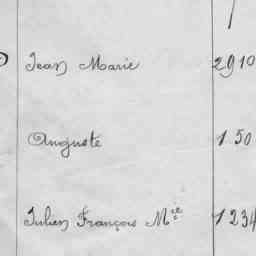 Jean Marie 2910
Auguste 150
Julien François Mce 1234